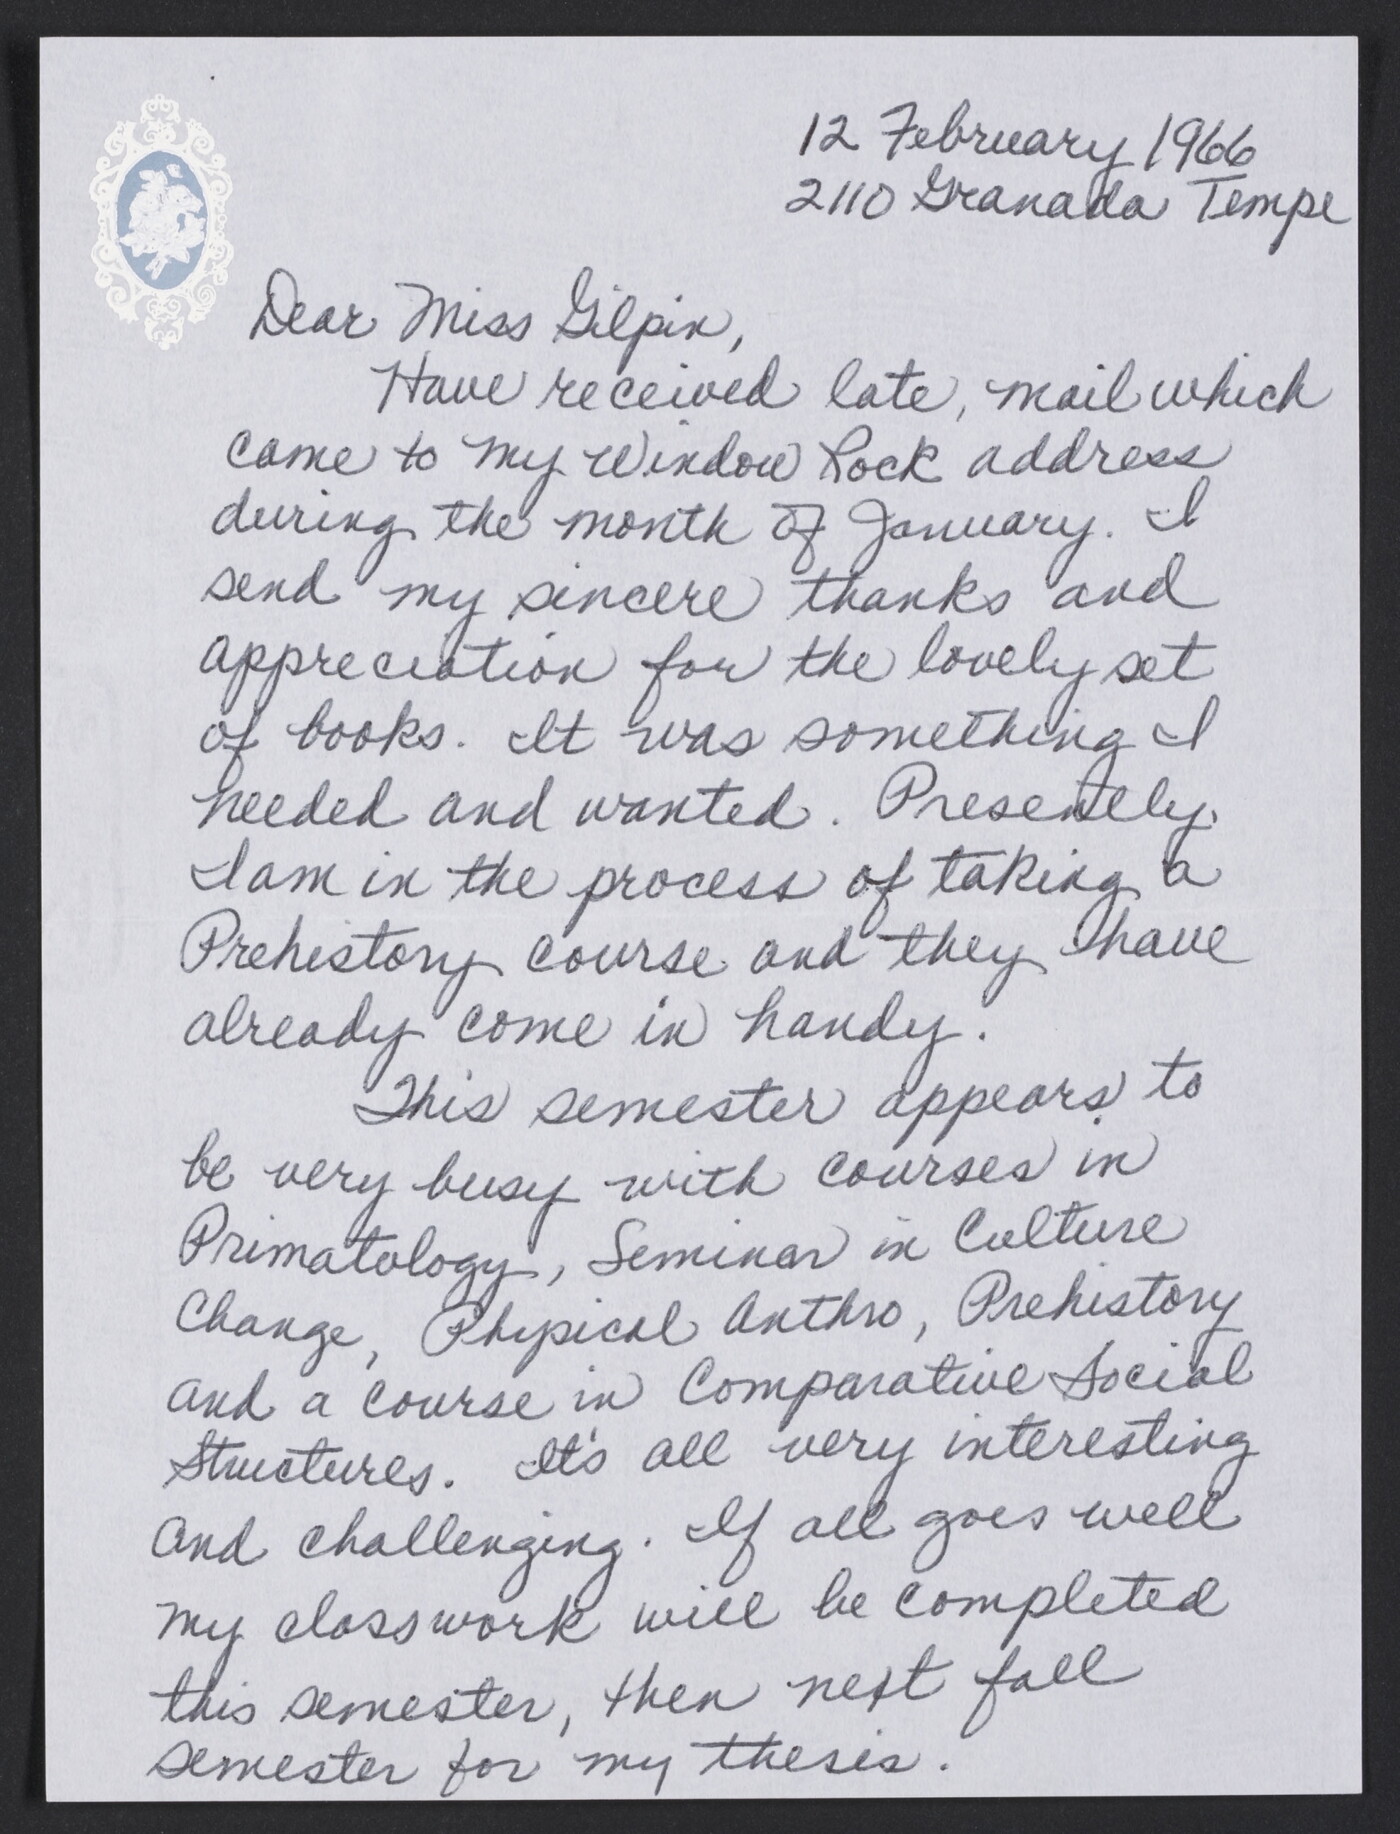 12 February 1966
2110 Granada Tempe
Dear Miss Gilpin,
Have received late, mail which
came to my Window Rock address
during the month of January. I
send my sincere thanks and
appreciation for the lovely set
of books. It was something I
needed and wanted. Presently
I am in the process of taking a
Prehistory course and they have
already come in handy.
This semester appears to
be very busy with courses in
Primatology, Seminar in Culture
Change, Physical Anthro, Prehistory
and a course in Comparative Social
Structures. It's all very interesting
and challenging. If all goes well
my classwork will be completed
this semester, then next fall
semester for my thesis.